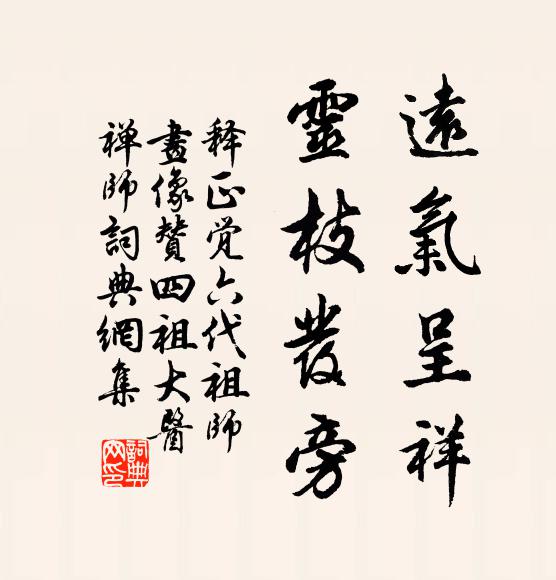 遠氣呈祥
靈枝發旁
释正觉六代祖師
畫像贊四祖大醫
禅师詞典網集
詞典
网印